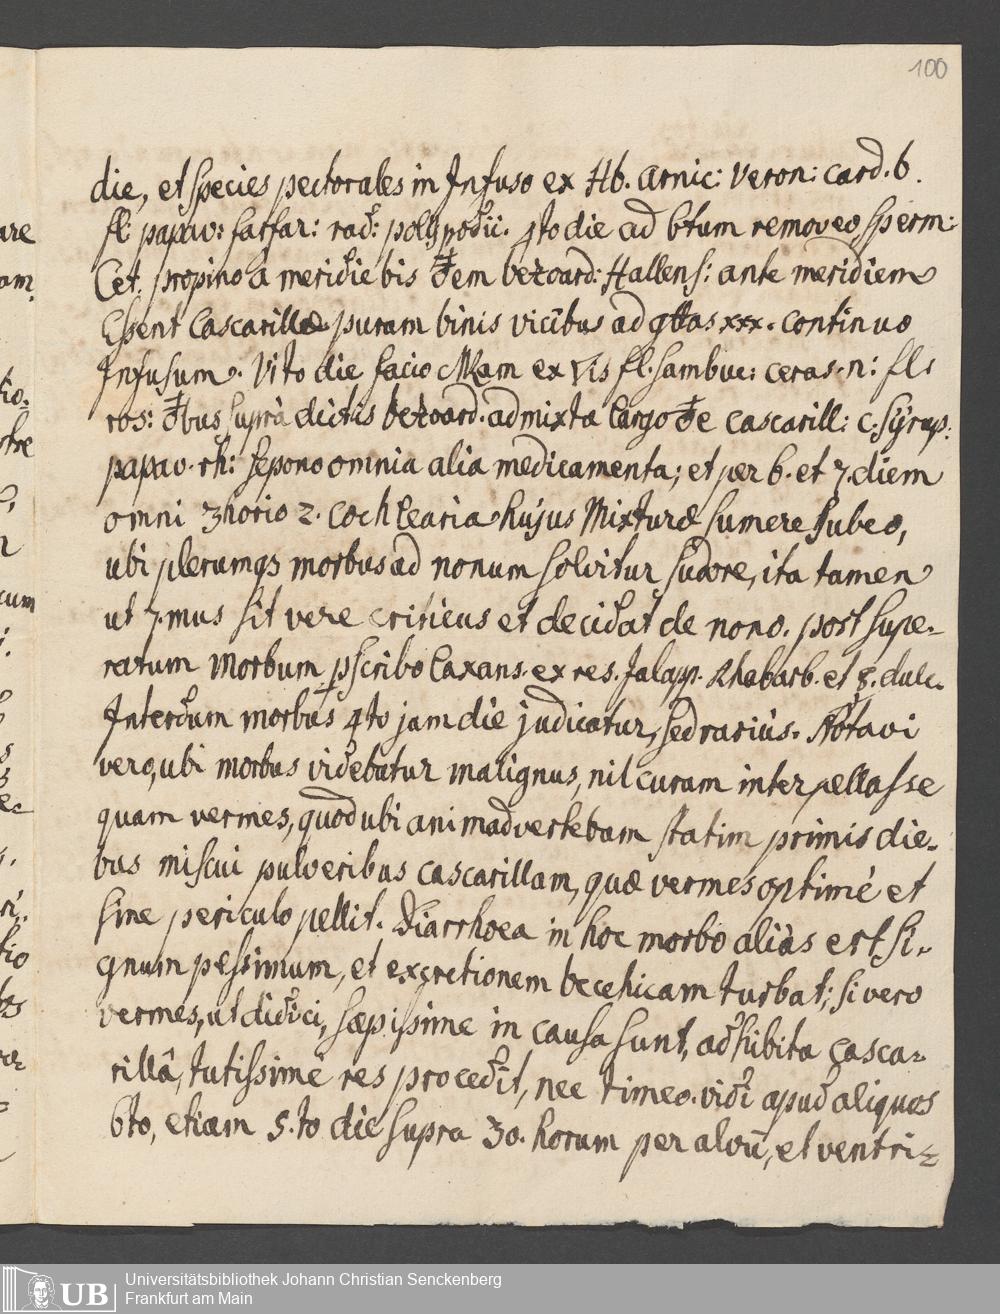 100
die, et species pectorales in Infuso ex Hb. arnic: veron: card. b.
fl: papav: farfar: rad: polypodii. 4to die ad 6tum removeo sperm:
Cet. propino à meridie bis em bezoard: Hallens: ante meridiem
Essent Cascarillæ puram binis vicibus ad gttas xxx. continuo
Infusum. VIto die facio ex is fl. sambuc: ceras. n: fl:
ros: bus suprà dictis bezoard. admixta largo e cascarill: c. syrup:
papav. rh: sepono omnia alia medicamenta; et per 6. et 7. diem
omni 3horio 2. cochlearia hujus Mixturæ sumere jubeo,
ubi plerumq3 morbus ad nonum solvitur sudore, ita tamen
ut 7.mus sit vere criticus et decidat de nono. post supe-
ratum morbum pscribo laxans. ex res. Jalapp. Rhabarb. et ☿. dulc.
Interdum morbus 4to jam die judicatur, sed rariùs. Notavi
vero, ubi morbus videbatur malignus, nil curam interpellasse
quam vermes, quod ubi animadvertebam statim primis die-
bus miscui pulveribus cascarillam, quæ vermes optimé et
sine periculo pellit. Diarrhoea in hoc morbo aliàs est si-
gnum pessimum, et excretionem bechicam turbat; si vero
vermes, ut didici, sæpissime in causa sunt, adhibita casca-
rillâ, tutissime res procedit, nec timeo. vidi apud aliquos
6to, etiam 5.to die supra 30. horum per alvū, et ventri-
are
am
tio.
stre
cum
tio
Universitätsbibliothek Johann Christian Senckenberg
Frankfurt am Main
UB